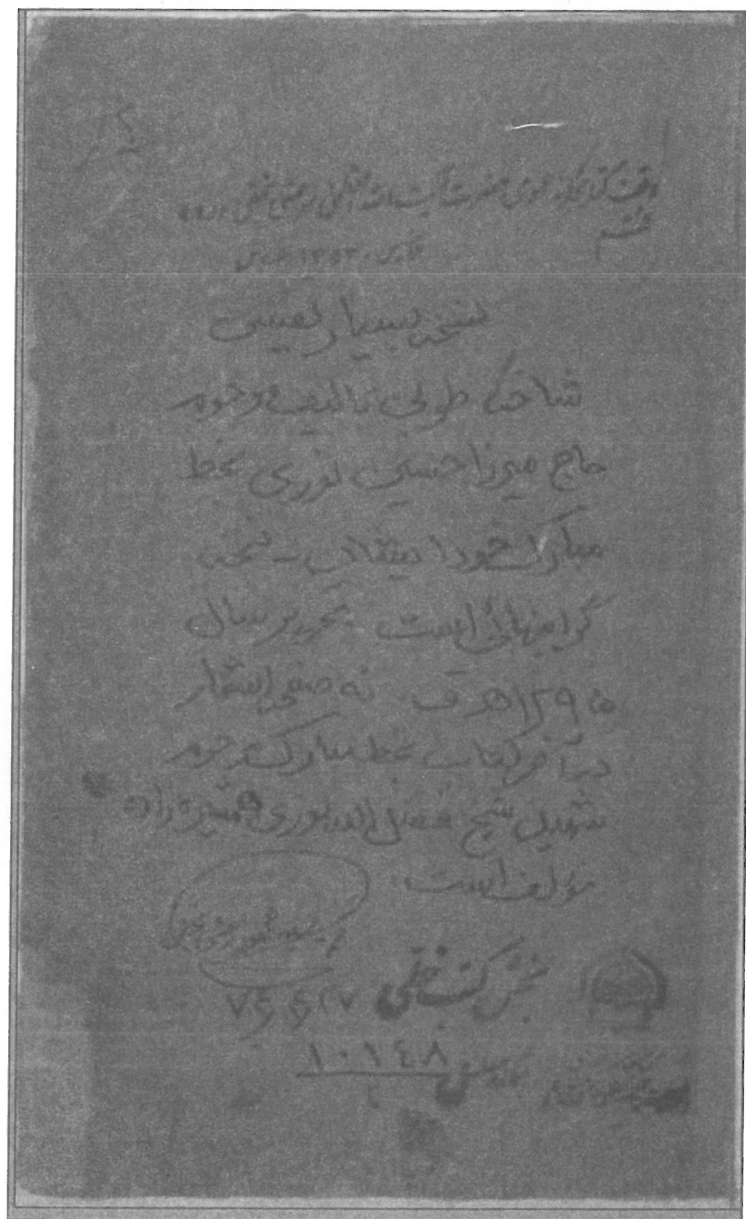 وقف کتابخانه عمومی حضرت آیت الله العظمی مرعشی نجفی
قم
۱۳۵۳
نسخه بسیار نفیسی
شاخهٔ طوبی تالیف مرحوم
حاج میرزا حسین نوری بخط
مبارک خود ایشان نسخه
گرانبهائی است تحریر سال
۱۲۹۵ هـ ق نه صفحه اشعار
در آخر کتاب بخط مبارک مرحوم
شهید شیخ فضل الله نوری همشیره زاده
مؤلف است.
بخش کتب خطی
۱۰۱٤۸